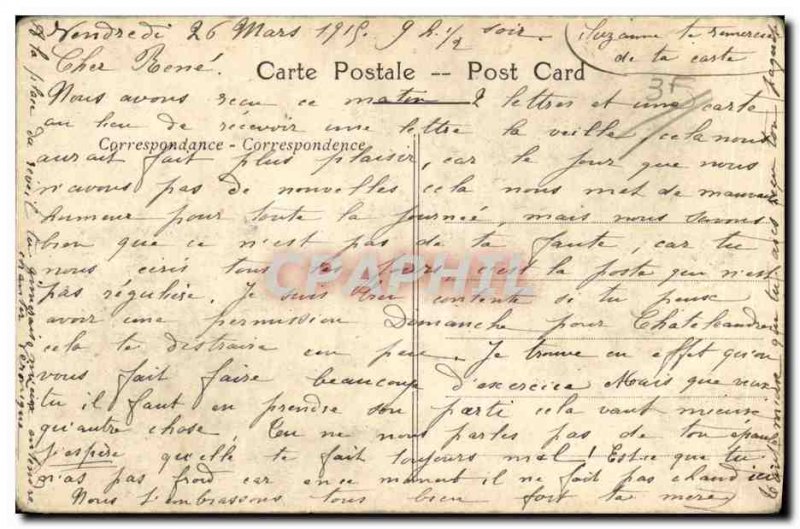 Vendredi 26 Mars 1915. 9 h. 1/2 soir.
(Suzanne te remercie
de ta carte
Cher René.
Carte Postale -- Post Card
3F
Nous avons reçu ce matin 2 lettres et une carte
au lieu de recevoir une lettre la veille, cela nous
Correspondance - Correspondence
aurait fait plus plaisir, car le jour que nous
n'avons pas de nouvelles cela nous met de mauvaise
humeur pour toute la journée, mais nous savons
bien que ce n'est pas de ta faute, car tu
nous écris tous les jours c'est la poste qui n'est
CPAPHIL
pas régulière. Je suis bien contente si tu peux
avoir une permission Dimanche pour Chatelaudren
cela te distraira un peu. Je trouve en effet qu'on
vous fait faire beaucoup d'exercice Mais que veux
tu il faut en prendre son parti cela vaut mieux
qu'autre chose. Tu ne nous parles pas de ton épaule
j'espère qu'elle te fait toujours mal! Est ce que tu
n'as pas froid car en ce moment il ne fait pas chaud ici
Nous t'embrassons tous bien fort ta mère